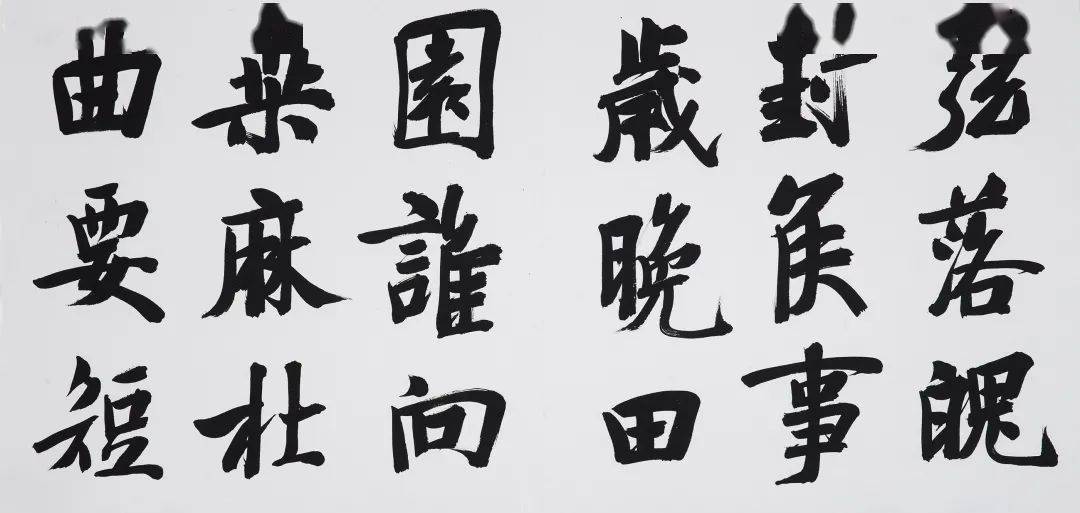 弦落魄
封侯事
歲晚田
園誰向
桑麻杜
曲要短